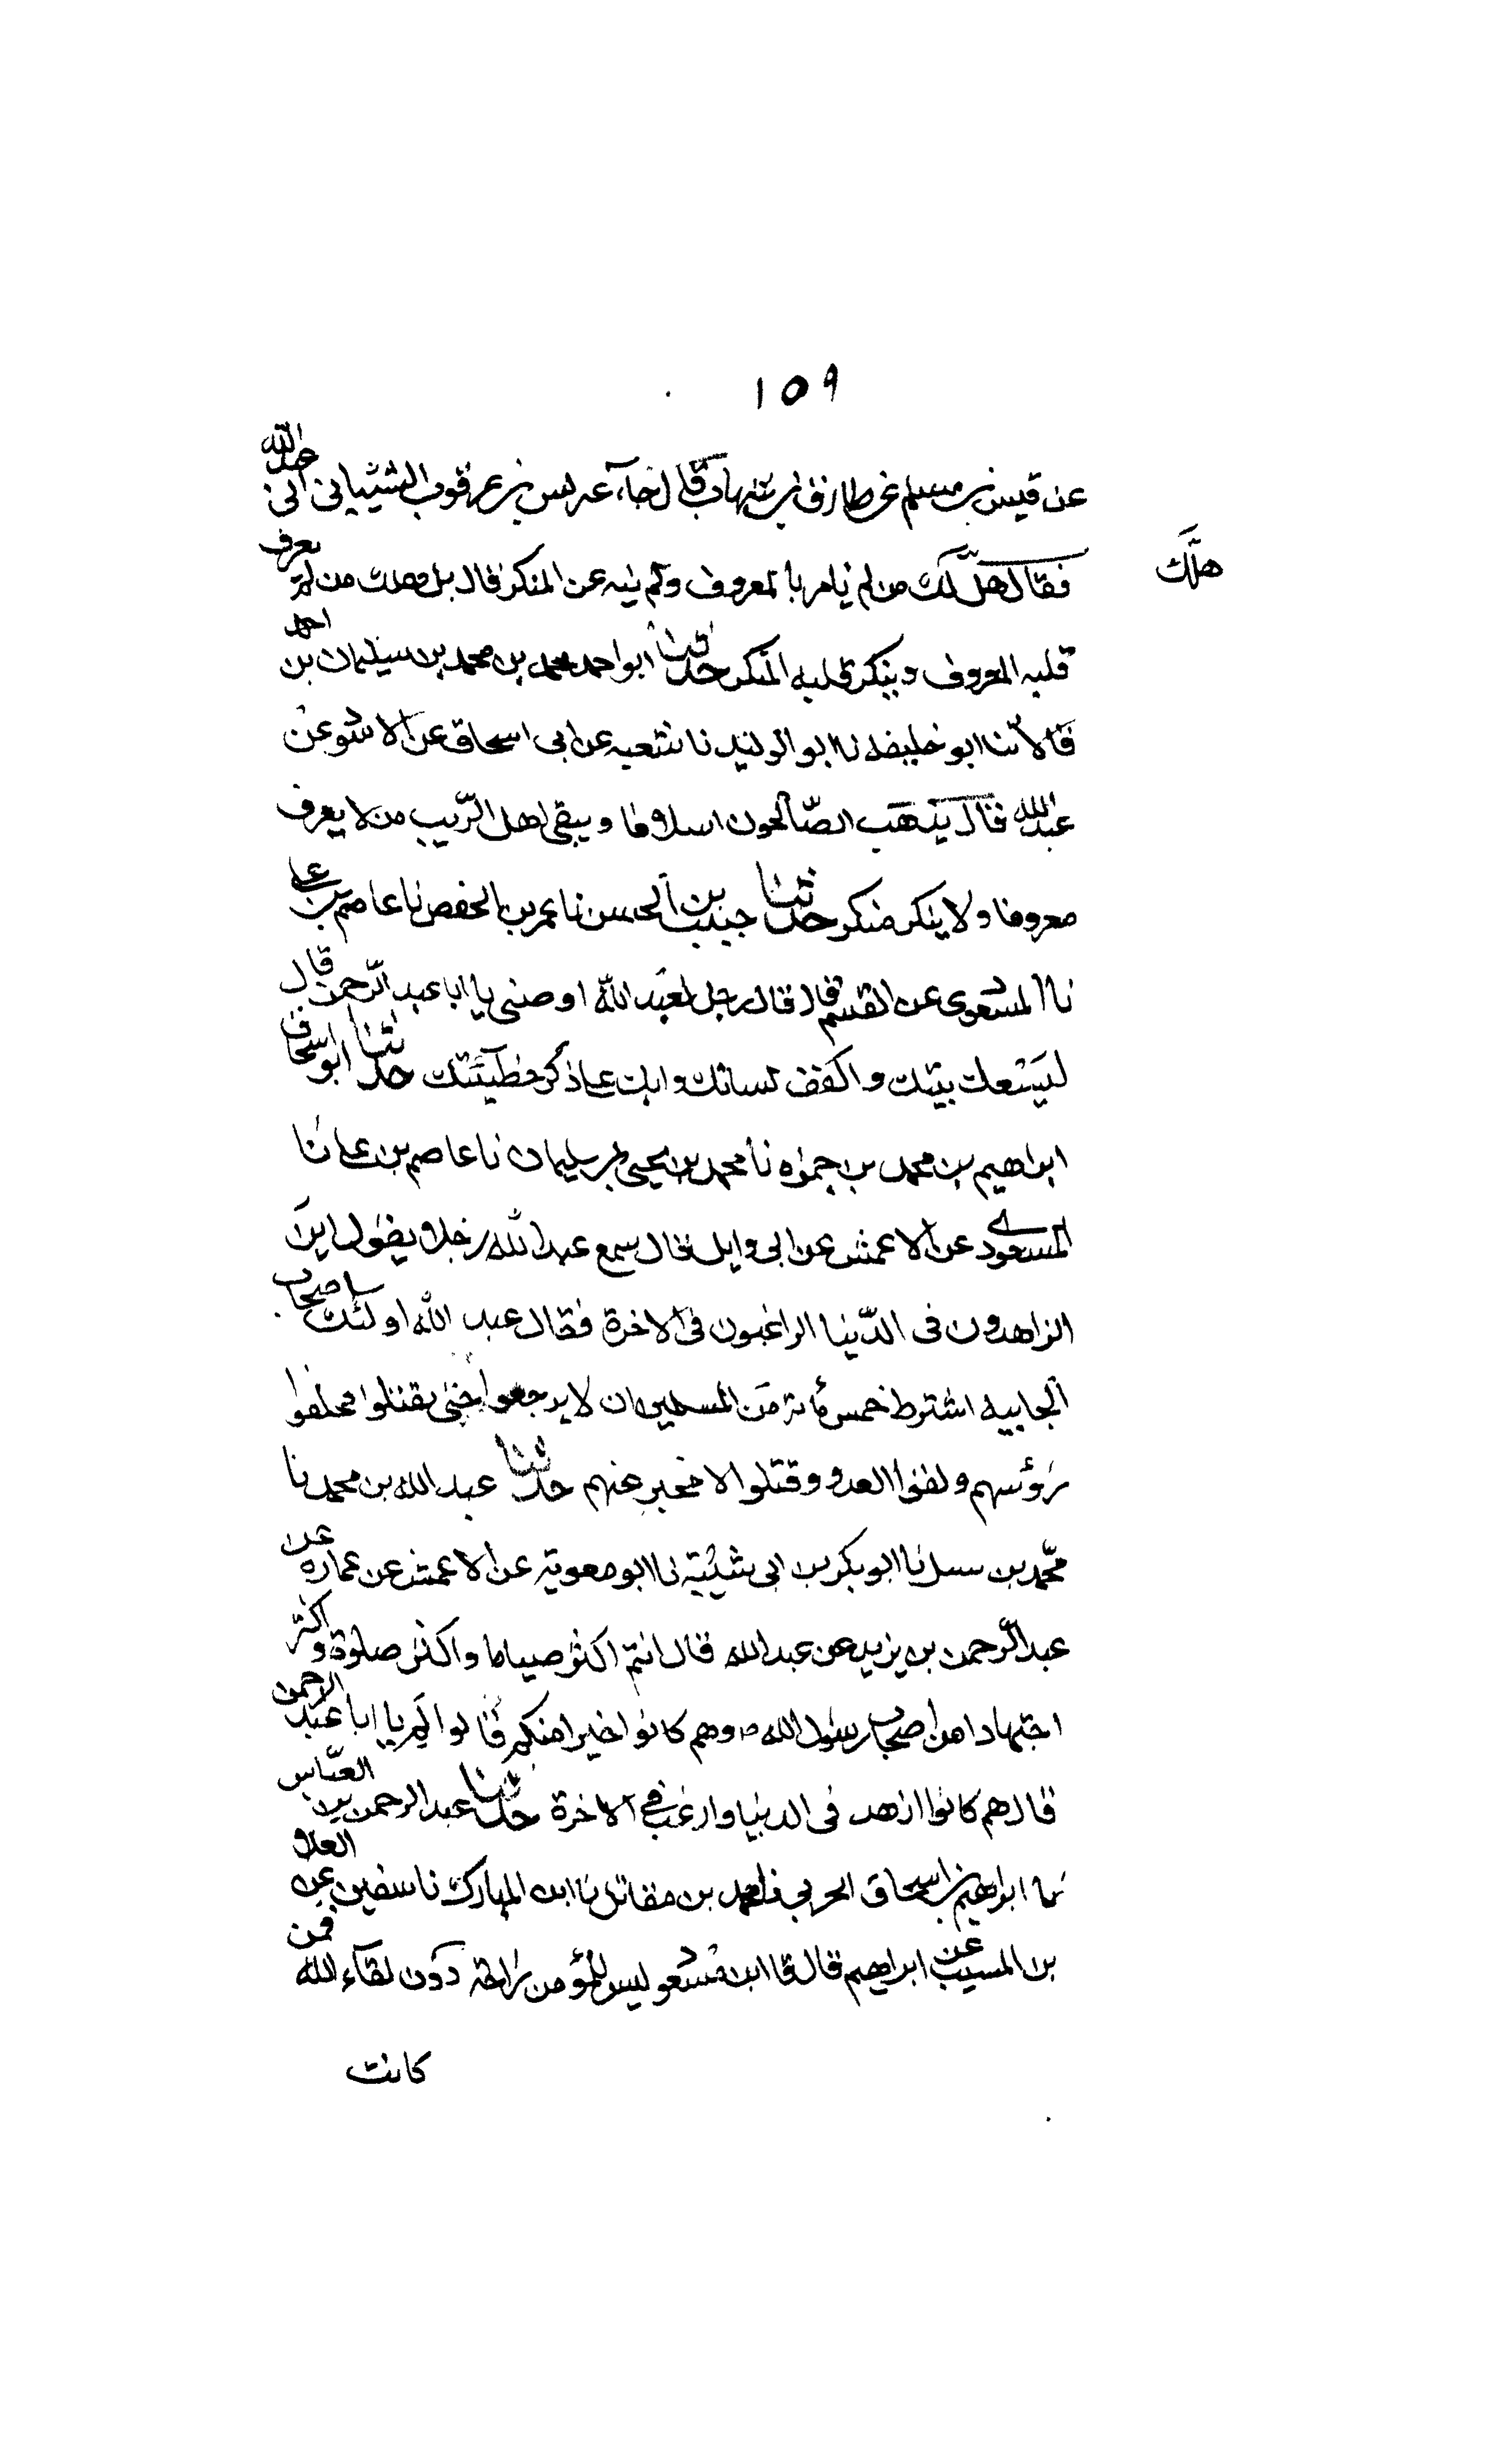 ١٥٩
عن قيس بن مسلم عن طارق بن شهاب قال جآء عتريس بن عرقوب الشيباني الى عبد الله
فقال هلَّك من لم يامر بالمعروف ولم ينه عن المنكر قال بل هلك من لم يعرف
هلَّك
قلبه المعروف وينكر قلبه المنكر حدثنا ابو احمد محمد بن محمد بن سليمان بن احمد
قالا ثنا ابو خليفه نا ابو الوليد نا شعبه عن ابى اسحاق عن الاسود عن
عبد الله قال يذهب الصّالحون اسلافا ويبقى اهل الرّيب من لا يعرف
معروفا ولا ينكر منكر حدثنا حبيب بن الحسن نا عمر بن الحفص نا عاصم بن على
نا المسعودى عن القسم قال قال رجل لعبد الله اوصنى يا ابا عبد الرّحمن قال
ليسعك بيتك واكفف لسانك وابك على ذكر خطآيئتك حدثنا ابو اسحاق
ابراهيم بن محمد بن حمزه نا محمد بن يحيى بن سليمان نا عاصم بن على نا
المسعودے عن الاعمش عن ابى وايل قال سمع عبد الله رجلا يقول اين
الزاهدون فى الدّنيا الراغبون فى الاخرة فقال عبد الله اولئك اصحاب
الجابيه اشترط خمس مائة من المسلمين ان لا يرجعوا حتى يقتلوا فحلقوا
رؤسهم ولقوا العدو وقتلوا الا مخبر عنهم حدثنا عبد الله بن محمد نا
محّمد بن سهل نا ابو بكر بن ابى شيبة نا ابو معوية عن الاعمش عن عماره عن
عبد الرّحمن بن يزيد عن عبد الله قال انتم اكثر صياما واكثر صلوة واكثر
اجتهادا من اصحاب رسول الله ص وهم كانوا خيرا منكم قالوا لم يا ابا عبد الرحمن
قال هم كانوا ازهد فى الدنيا وارغب فى الاخرة حدثنا عبد الرحمن بن العبّاس
نا ابراهيم بن اسحاق الحربي نا محمد بن مقاتل نا ابن المبارك نا سفين عن العلا
بن المسيب عن ابراهيم قال قا ابن مسعود ليس للمؤمن راحة دون لقآء الله فمن
كانت